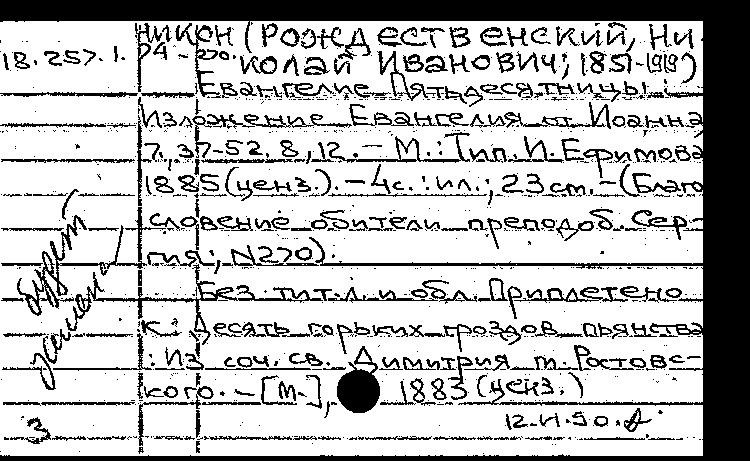 НИКОН (РОЖДЕСТВЕНСКИЙ, НИ-
18.257.1.74-270. КОЛАЙ ИВАНОВИЧ; 1851-1919)
Евангелие Пятьдесятницы:
Изложение Евангелия от Иоанна
7,37-52. 8,12. – М.: Тип. И. Ефимова
1885 (ценз.). – 4 с.: ил.; 23 см. – (Благо
словение обители преподоб. Сер-
гия; N270).
Без тит. л. и обл. Приплетено
к: Десять горьких гроздов пьянства
: Из соч. св. Димитрия м. Ростовс-
кого. – [М.], 1883 (ценз.)
будет
3